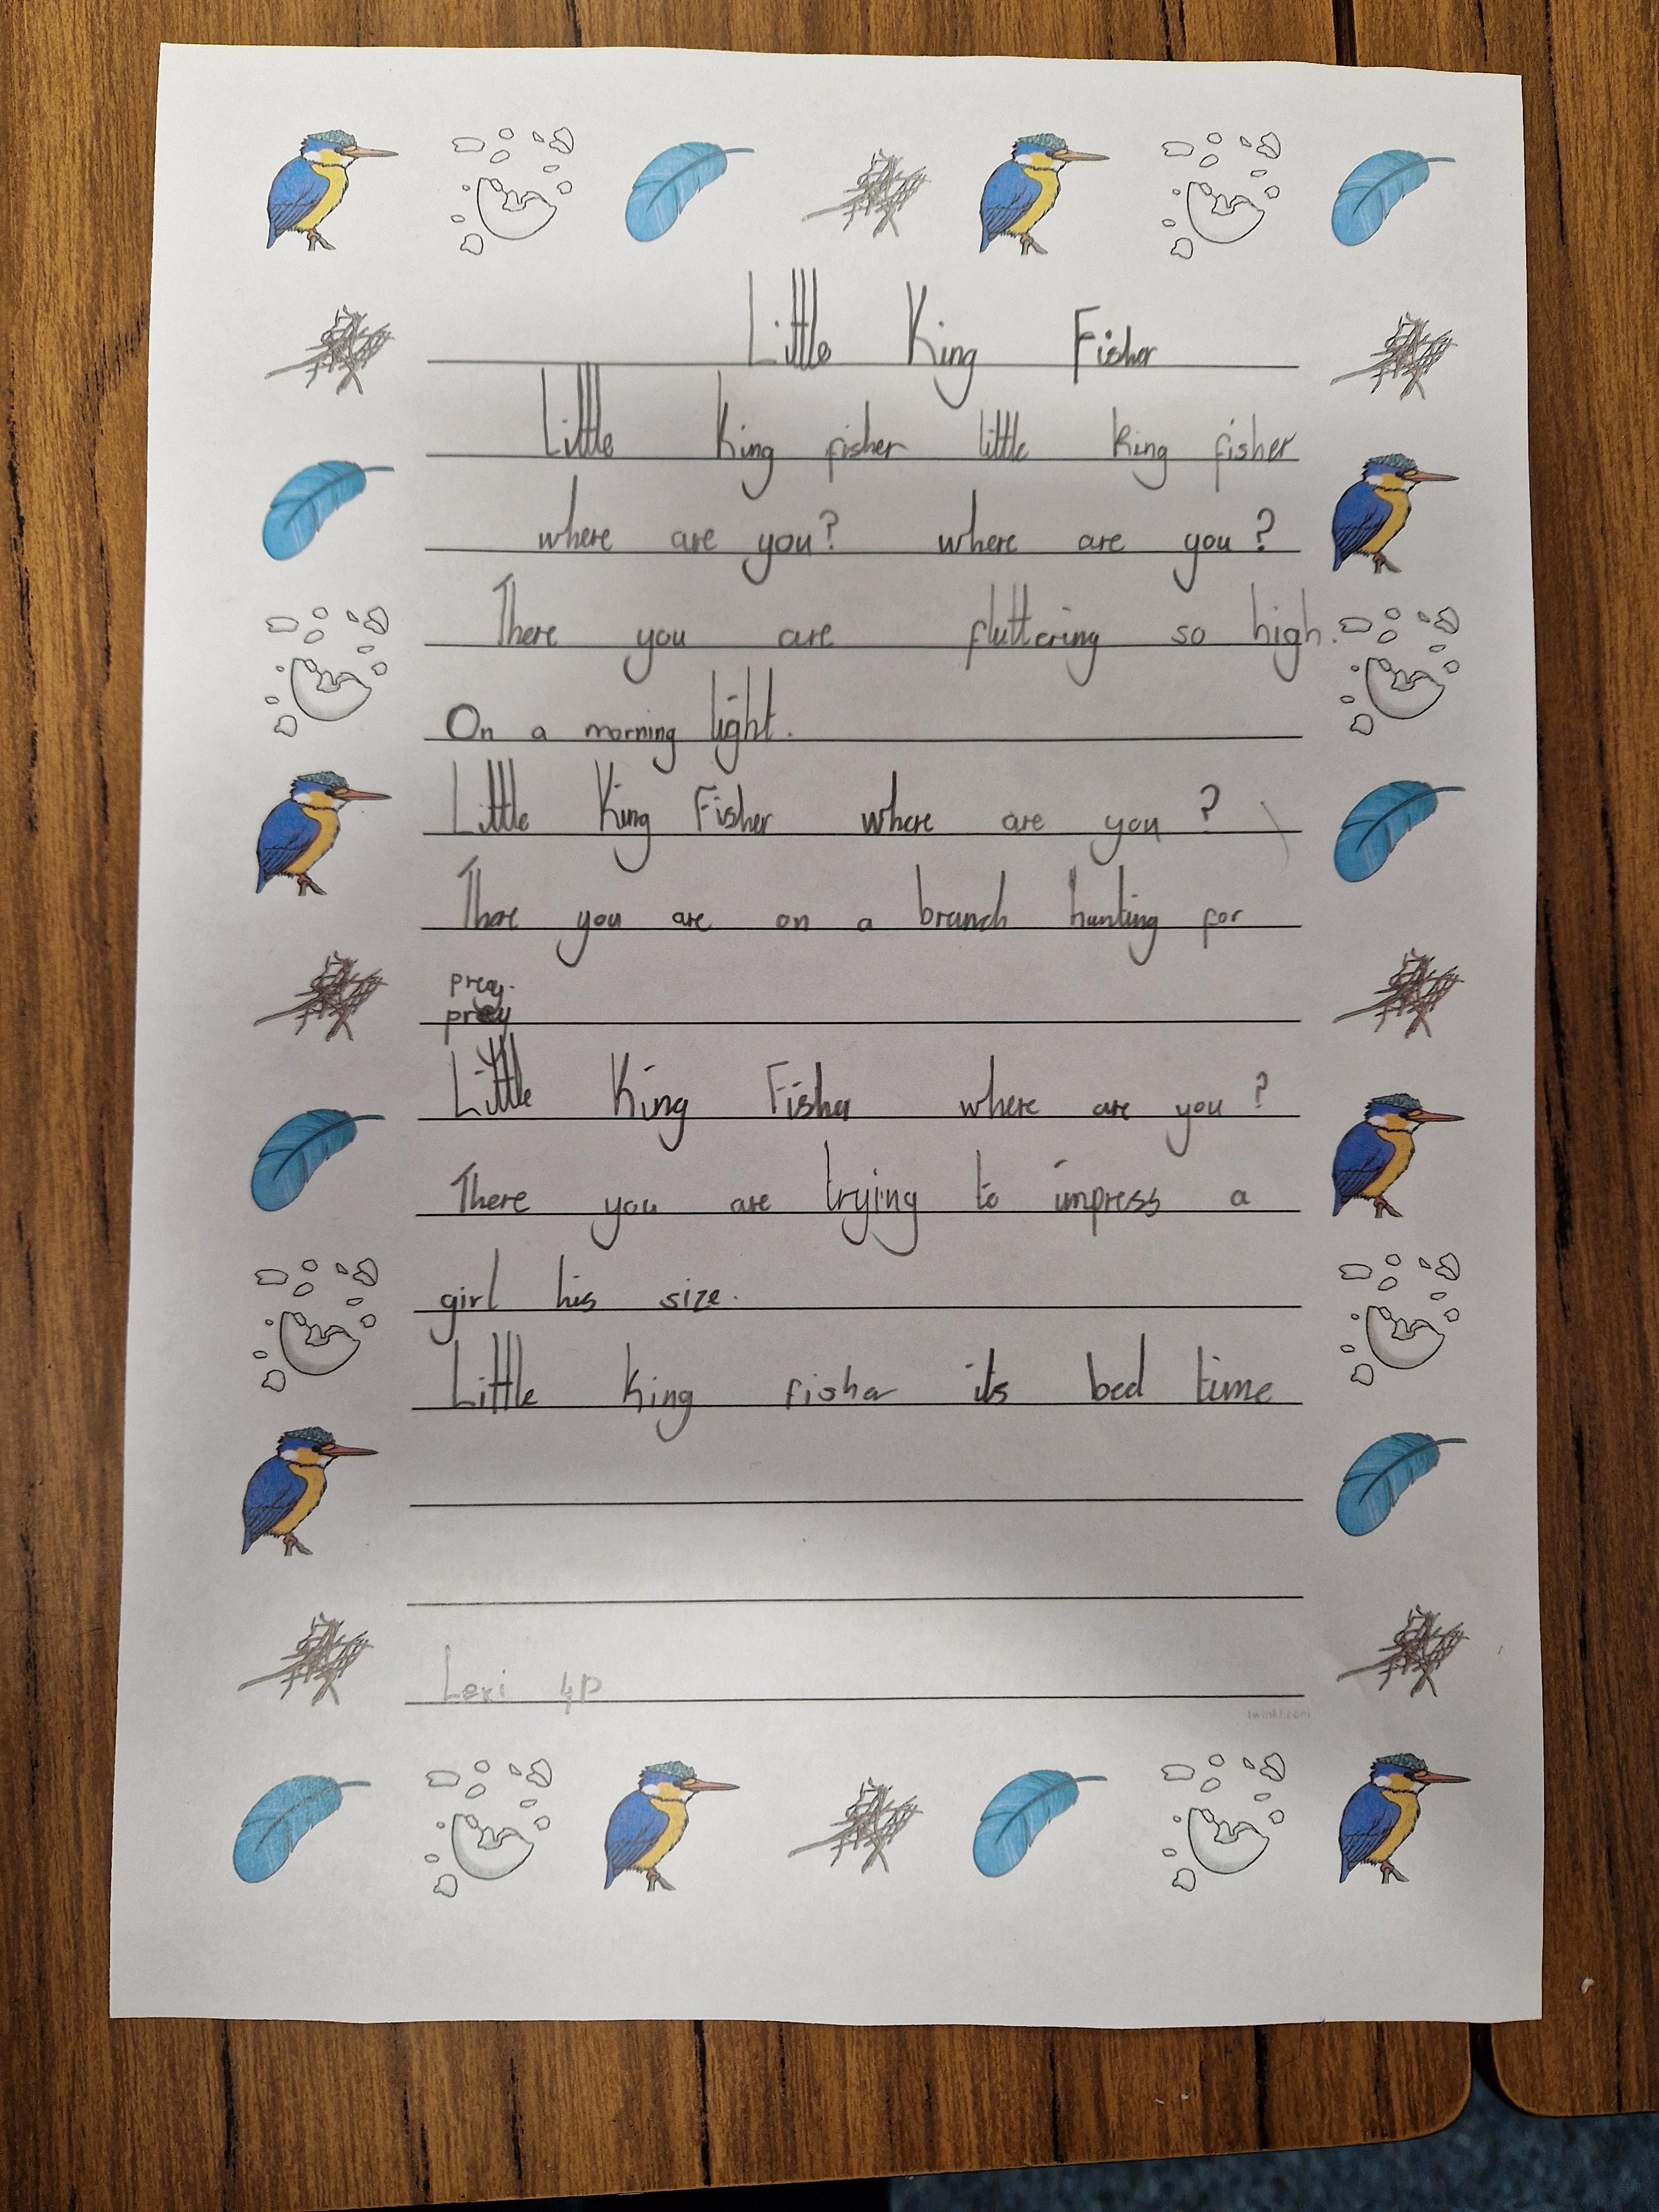 Little King Fisher
Little King fisher little King fisher
where are you? where are you?
There you are fluttering so high.
On a morning light.
Little King Fisher where are you?
There you are on a branch hunting for
prey.
prey
Little King Fisher where are you?
There you are trying to impress a
girl his size.
Little King fisher its bed time
Lexi 4P
twinkl.com